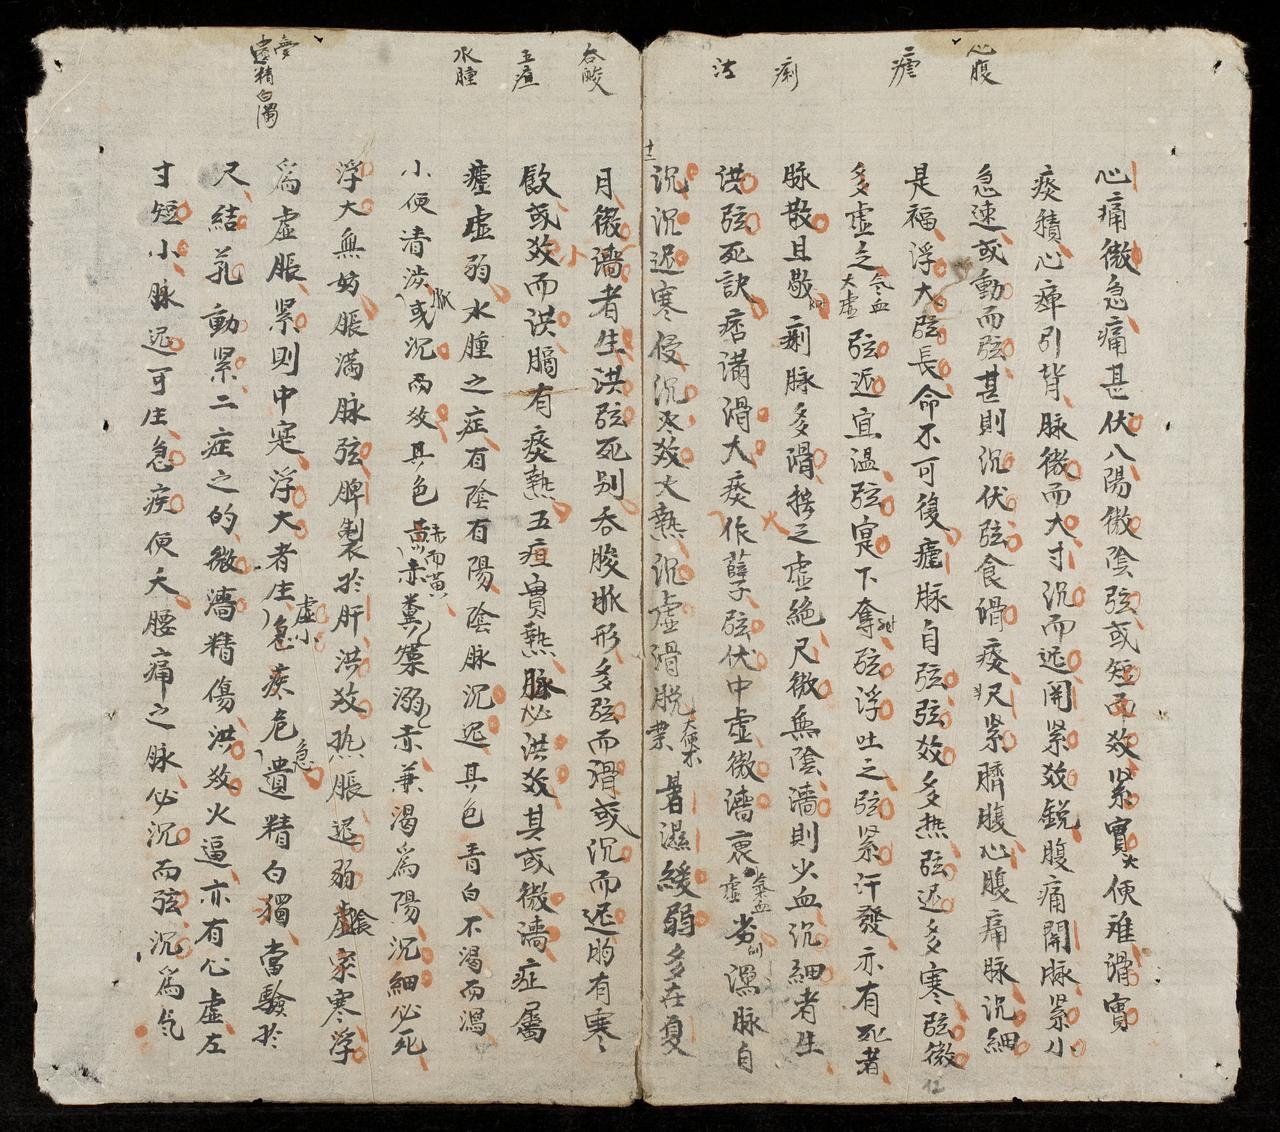 心腹
瘧
痢
吞酸
五疸
水腫
夢
遺精白濁
心痛微急痛甚伏八陽微陰弦或短而效紧實大便难滑實
痰積心痺引背脉微而大寸沉而迟関紧效銳腹痛関脉紧小
急速或動而弦甚則沉伏弦食滑痰尺紧臍腹心腹痛脉沉細
是福浮大弦長命不可復瘧脉自弦弦效多热弦迟多寒弦微
多虚之氣血大虚弦迟宜温弦寔下奪弦浮吐之弦紧汗發亦有死者
脉散且歇痢脉多滑按之虚絶尺微無陰濇則少血沉細者生
洪弦死訣痞满滑大痰作孽弦伏中虚微濇衷虚氣血劣脉自
沉沉迟寒侵沉效大熱沉虚滑脱大便不禁暑濕緩弱多在夏
十二
月微濇者生洪弦死别吞酸脉形多弦而滑或沉而迟胸有寒
飲或效而洪膈有痰熱五疸實熱脉必洪效其或微濇症屬
虚弱水腫之症有陰有陽陰脉沉迟其色青白不渴而瀉
小便清脉或沉而效其色赤而黄黄赤糞溺赤兼渴爲陽沉細必死
浮大無妨脹满脉弦脾製於肝洪效热脹迟弱陰虚家寒浮
爲虚脹紧則中寔浮大者庄虚小急疾危急遺精白獨當驗於
尺結芤動紧二症之的微濇精傷洪效火逼亦有心虚左
寸短小脉迟可庄急疾便夭腰痛之脉必沉而弦沉爲气
12